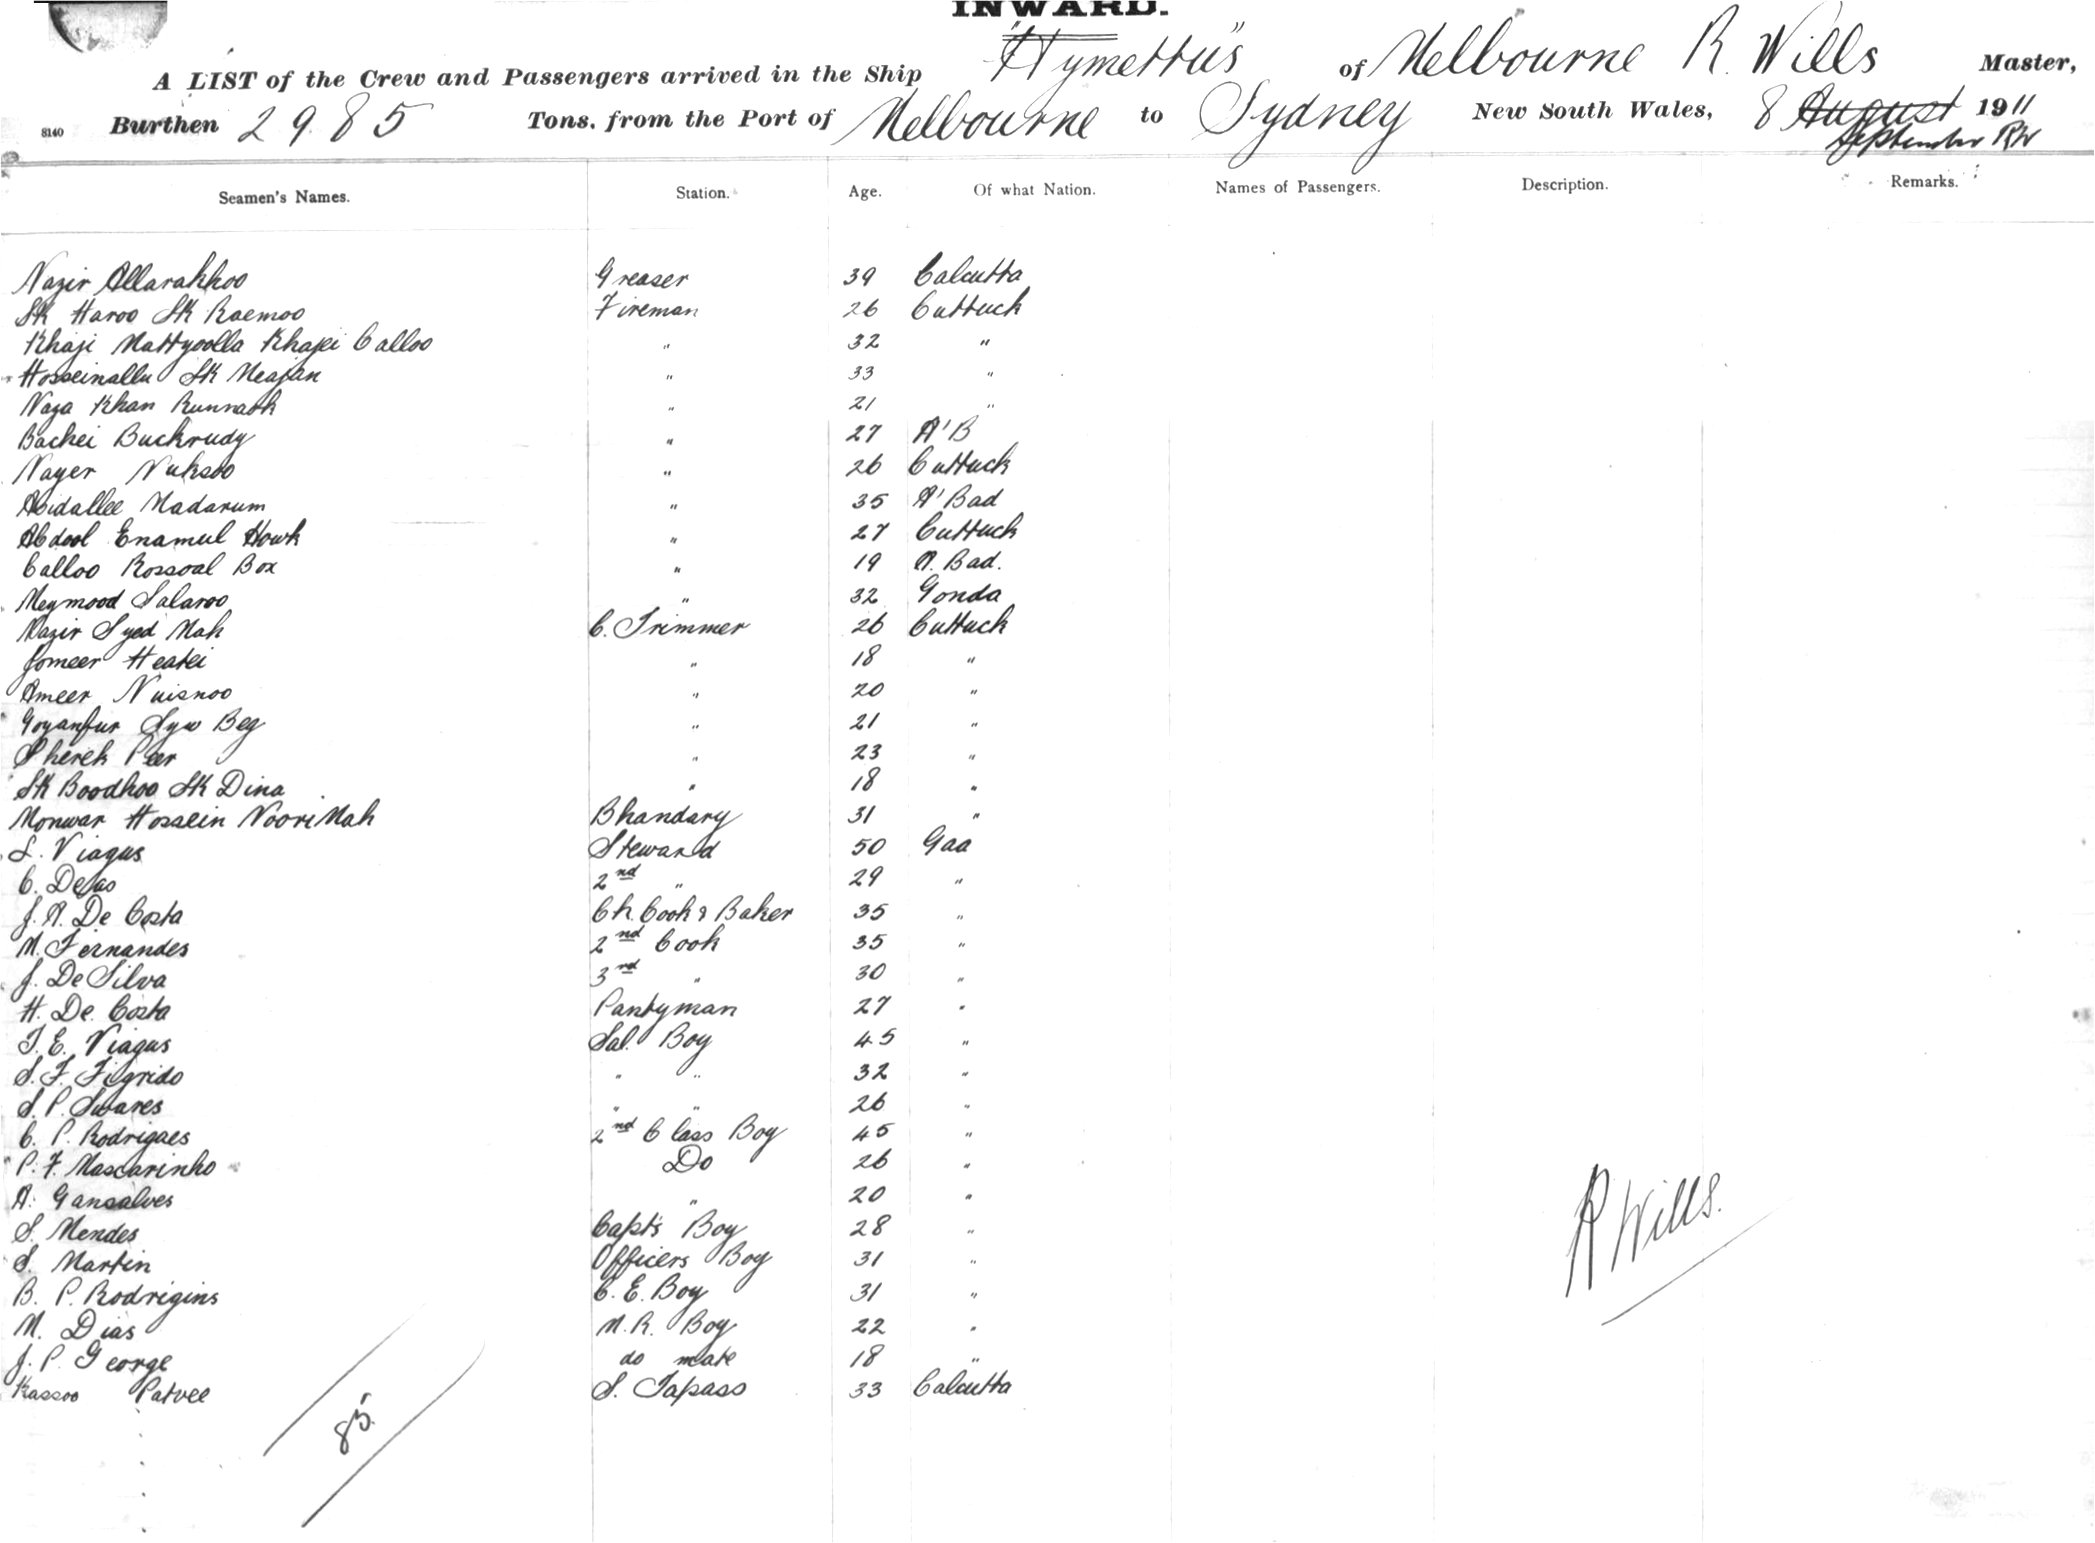 INWARD.
A LIST of the Crew and Passengers arrived in the Ship "Hymettus" of Melbourne R. Wills Master,
8140 Burthen 2985 Tons, from the Port of Melbourne to Sydney New South Wales, 8 August 1911
September RW
Seamen's Names. Station. Age. Of what Nation. Names of Passengers. Description. Remarks.
Nazir Allarakhoo Greaser 39 Calcutta
Sk Haroo Sk Raemoo Fireman 26 Cuttuck
Khaji Mattyoolla Khaji Calloo " 32 "
Hosseinallu Sk Meajan " 33 "
Naza Khan Runnath " 21 "
Backei Buckrudy " 27 A'B
Nayer Nuksoo " 26 Cuttuck
Abidallee Madarum " 35 A'Bad
Abdool Enamul Howk " 27 Cuttuck
Calloo Rossoal Box " 19 A. Bad.
Meymood Salaroo " 32 Gonda
Nazir Syed Mah C. Trimmer 26 Cuttuck
Jomeer Heatei " 18 "
Ameer Nuisnoo " 20 "
Goyanfur Syw Beg " 21 "
Sherek Peer " 23 "
Sk Boodhoo Sk Dina " 18 "
Monwar Hossein Noori Mah Bhandary 31 "
L. Viagus Steward 50 Goa
C. Dejas 2nd " 29 "
J. A. De Costa Ch. Cook & Baker 35 "
M. Fernandes 2nd Cook 35 "
J. De Silva 3rd " 30 "
H. De Costa Pantyman 27 "
T. E. Viagus Sal. Boy 45 "
S. F. Figrido " " 32 "
S. P. Swares " " 26 "
C. P. Rodrigaes 2nd Class Boy 45 "
P. F. Mascarinho Do 26 "
A. Gansalves " 20 "
S. Mendes Capt's Boy 28 "
S. Martin Officers Boy 31 "
B. P. Rodrigins C. E. Boy 31 "
M. Dias M. R. Boy 22 "
J. P. George do mate 18 "
Kassoo Patvee S. Tapass 33 Calcutta
R Wills.
85